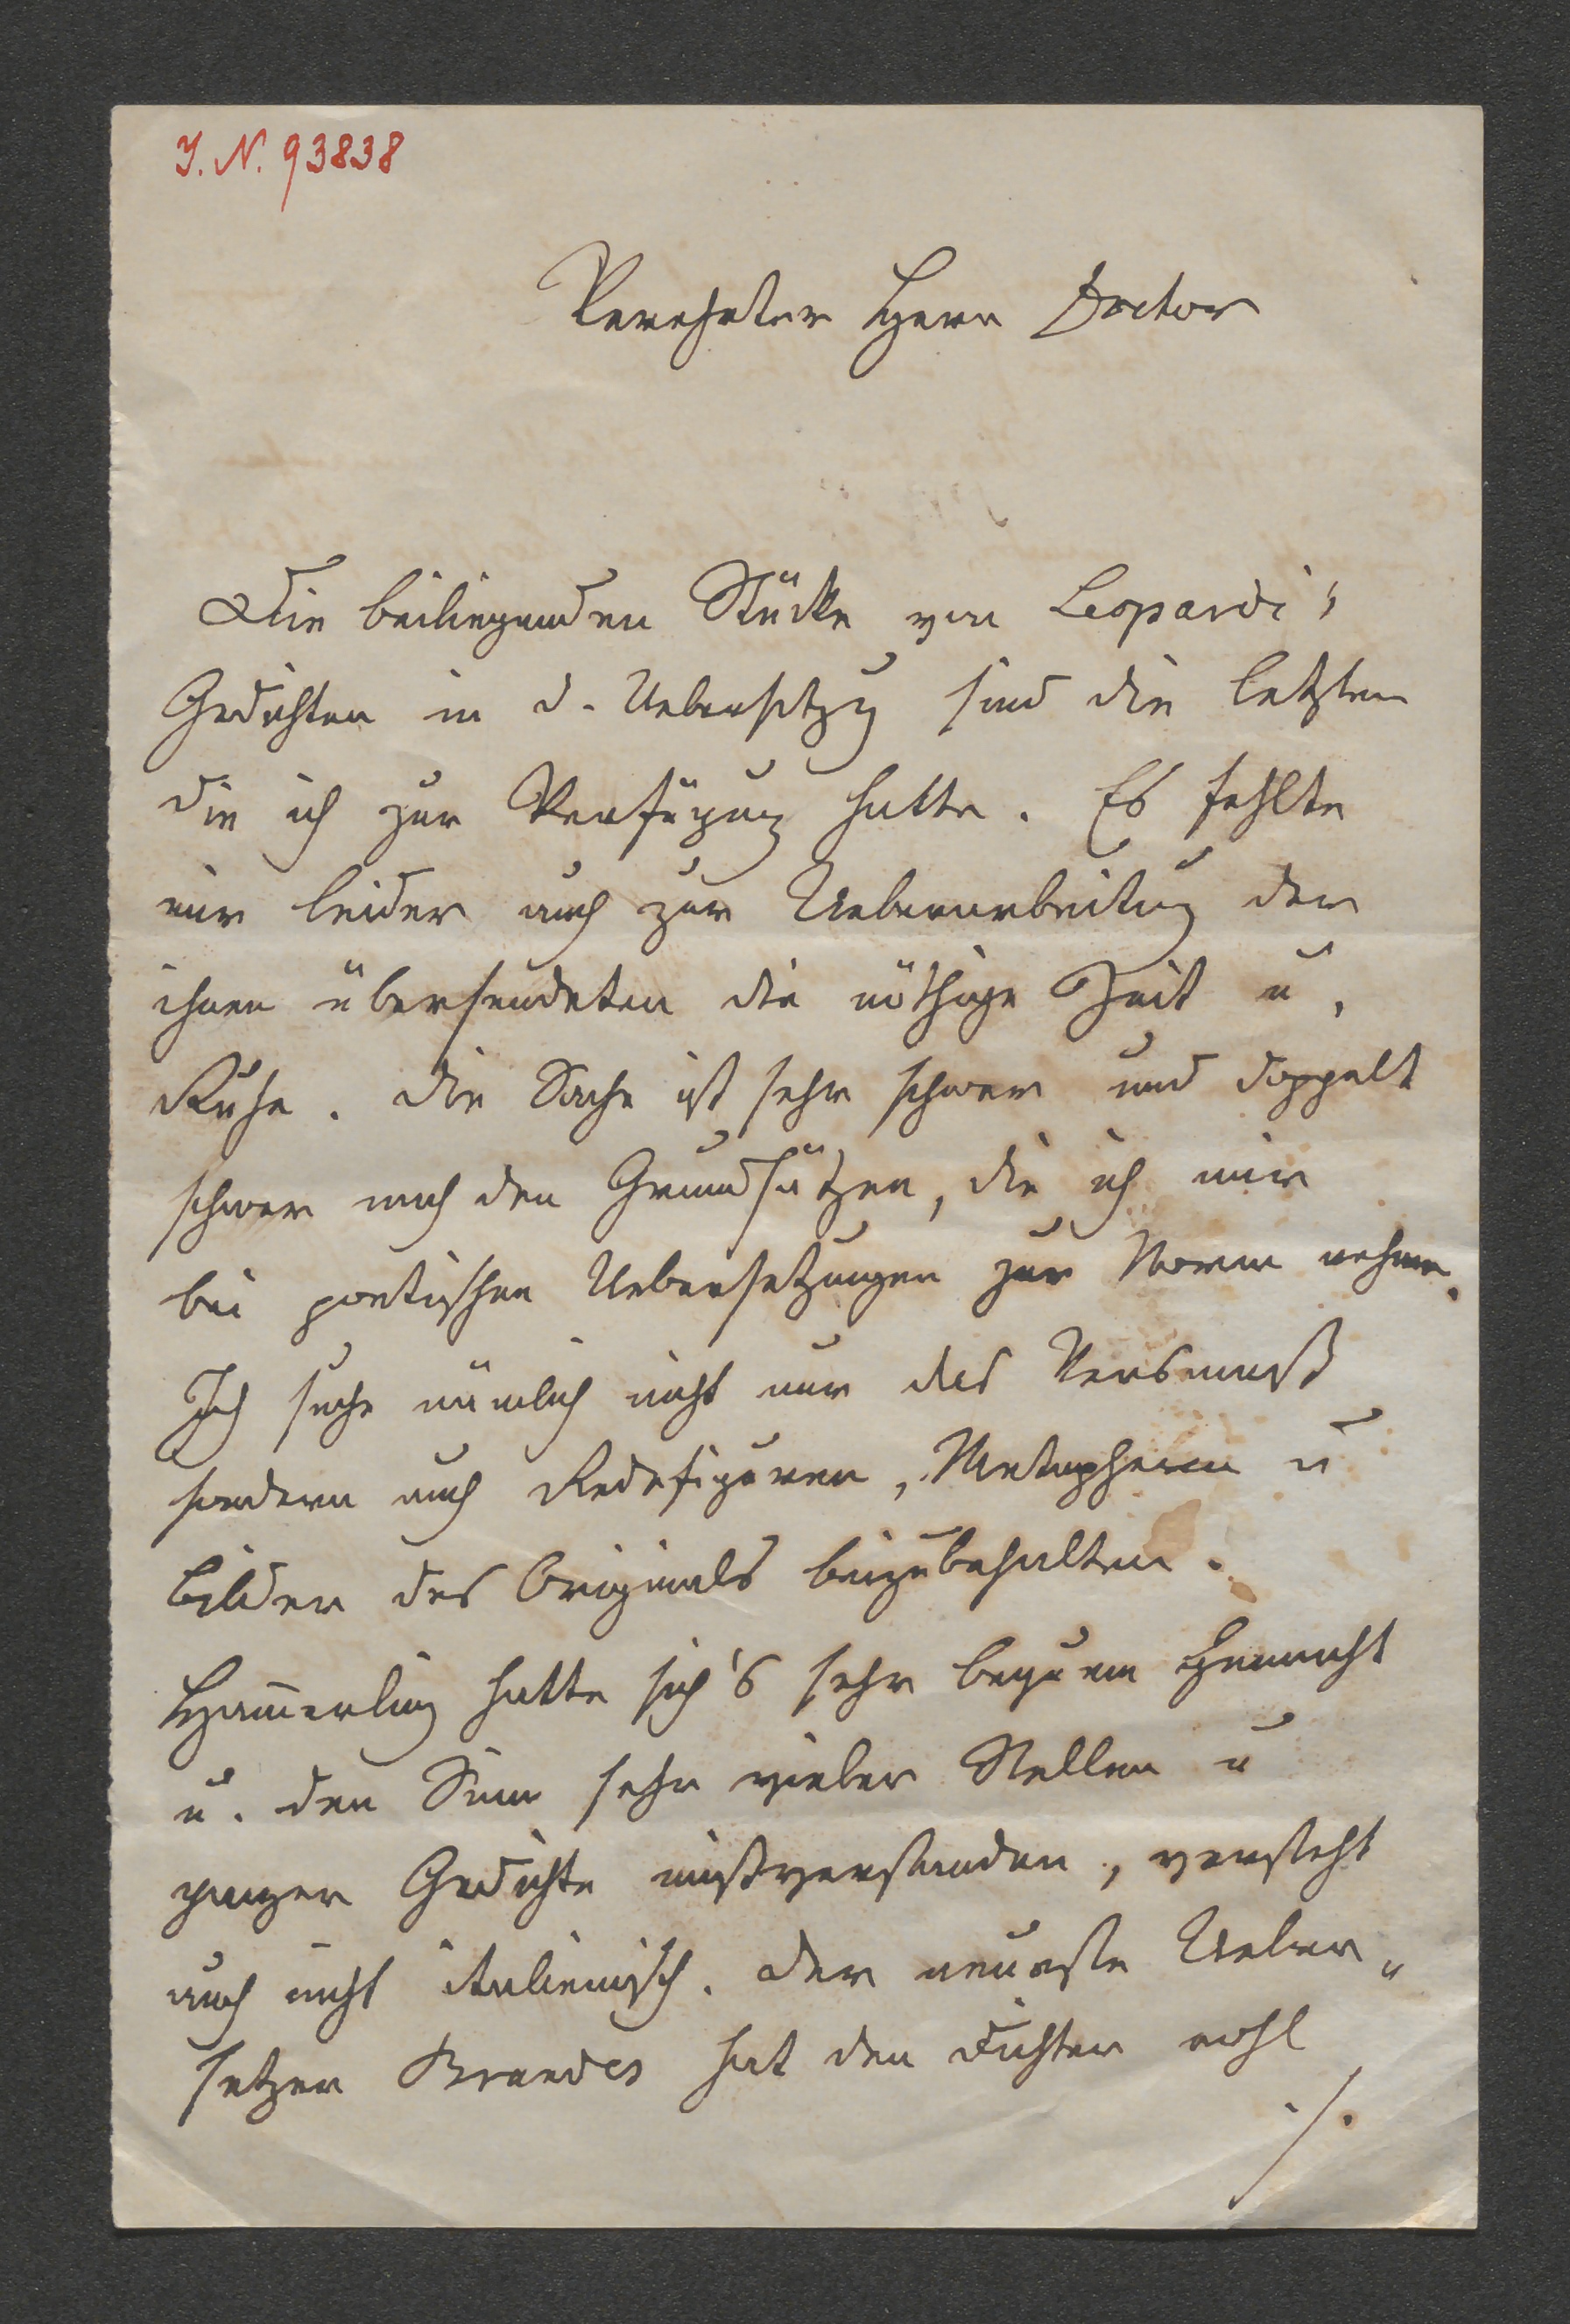 I. N. 93838
Verehrter Herr Doctor
Die beiliegenden Stücke von Leopardi's
Gedichten in d. Uebersetzg sind die letzten
die ich zur Verfügung hatte. Es fehlte
mir leider auch zur Ueberarbeitung der
ihnen übersendeten die nöthige Zeit u.
Ruhe. Die Sache ist sehr schwer und doppelt
schwer nach den Grundsätzen, die ich mir
bei poetischen Uebersetzungen zur Norm nehme.
Ich suche nämlich nicht nur das Versmaß
sondern auch Redefiguren, Metaphern u
Bilder des Originals beizubehalten.
Ham̄erling hatte sich's sehr bequem gemacht
u. den Sinn sehr vieler Stellen u
ganzer Gedichte mißverstanden, versteht
auch nicht italienisch. Der neueste Ueber„
setzer Brandes hat den Dichter wohl
./.